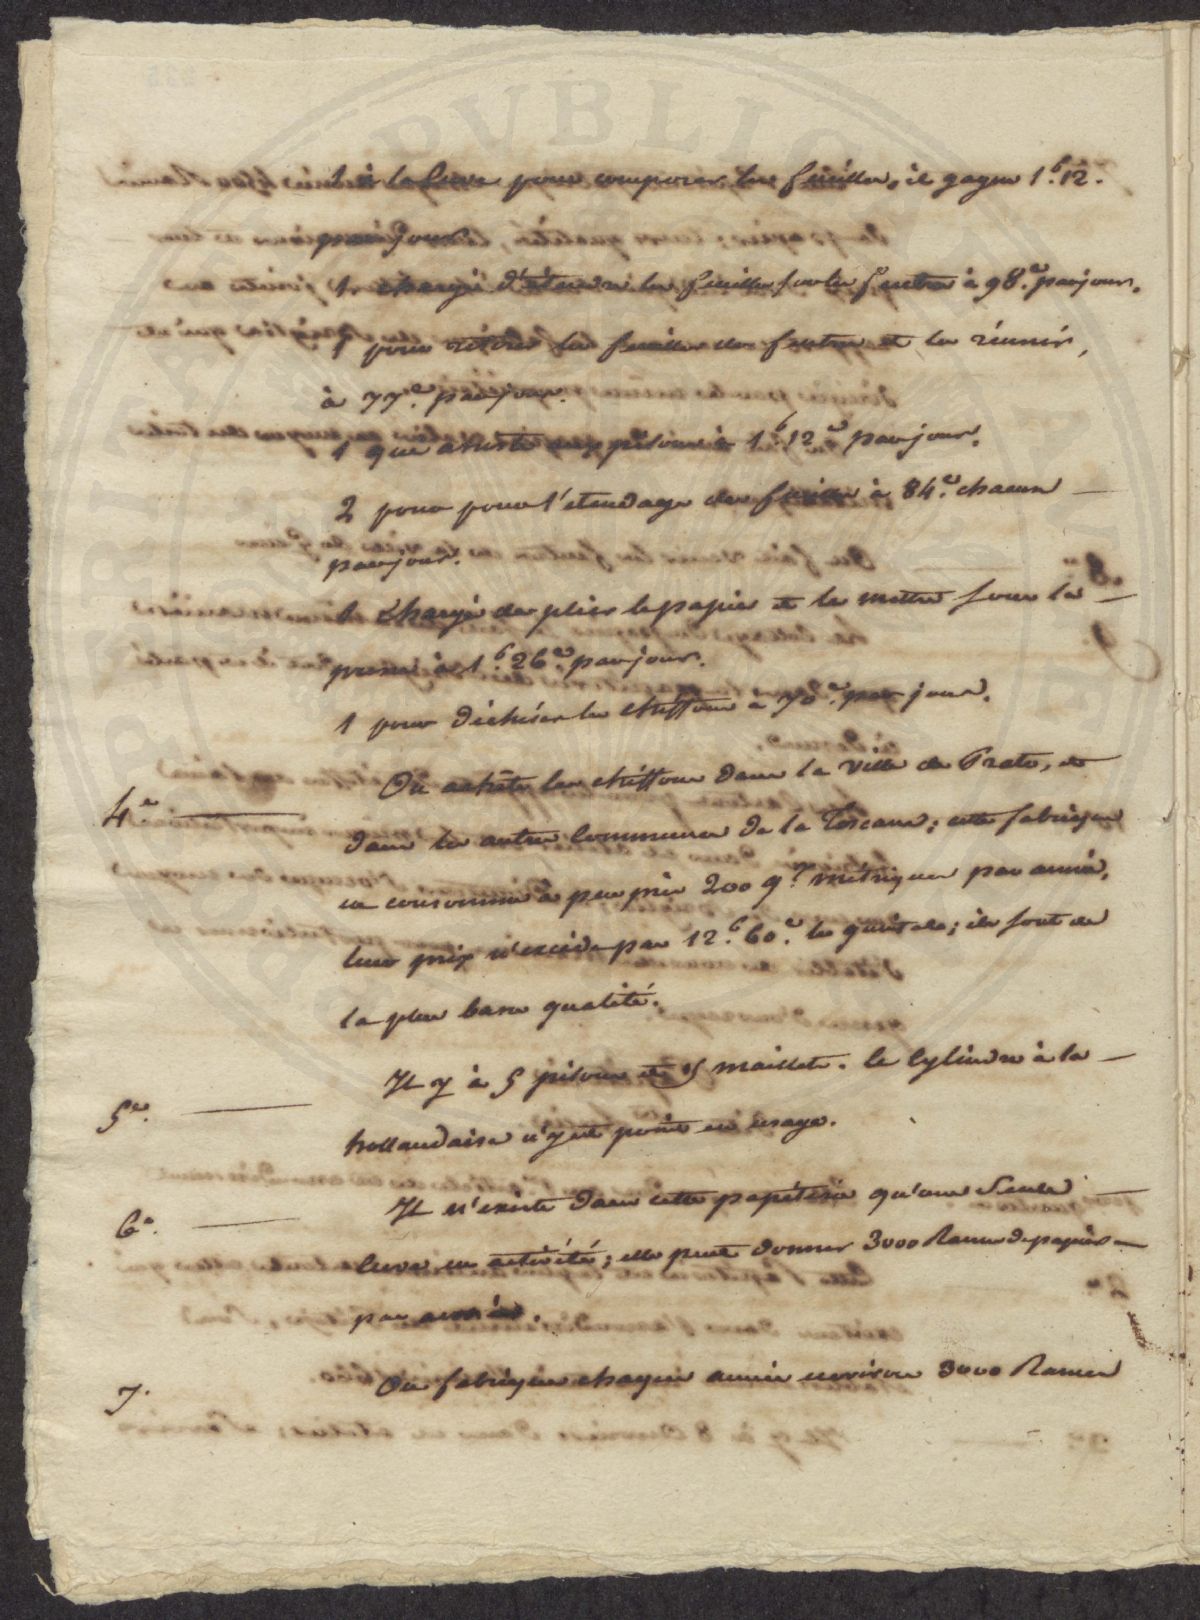 1 à la Cuve pour composer les feuilles, il gagne 1.f 12.
par jour
1 chargé d'étendre les feuilles sur les feutres à 98.c par jour.
1 pour retirer les feuilles des feutres et les réunir,
à 77.c par jour.
1 qui assiste aux pilons à 1.f 12c par jour.
2 pour pour l'étendage des feuilles à 84.c chacun —
par jour.
1 chargé de plier le papier et le mettre sous la —
presse à 1.f 26c par jour.
1 pour déchirer les chiffons à 70.c par jour.
4.e — On achète les chiffons dans la Ville de Prato, et
dans les autres Communes de la Toscane; cette fabrique
en consomme à peu près 200 q.x métriques par année,
leur prix n'excède pas 12.f 60.c le quintale; ils sont de
la plus basse qualité.
5.e — Il y à 5 pilons et 15 maillets. le Cylindre à la —
hollandaise n'y est point en usage.
6.e — Il n'existe dans cette papéterie qu'une Seule —
Cuve en activité; elle peut donner 3000 Rames de papier —
par année.
7. On fabrique chaque année environ 3000 Rames